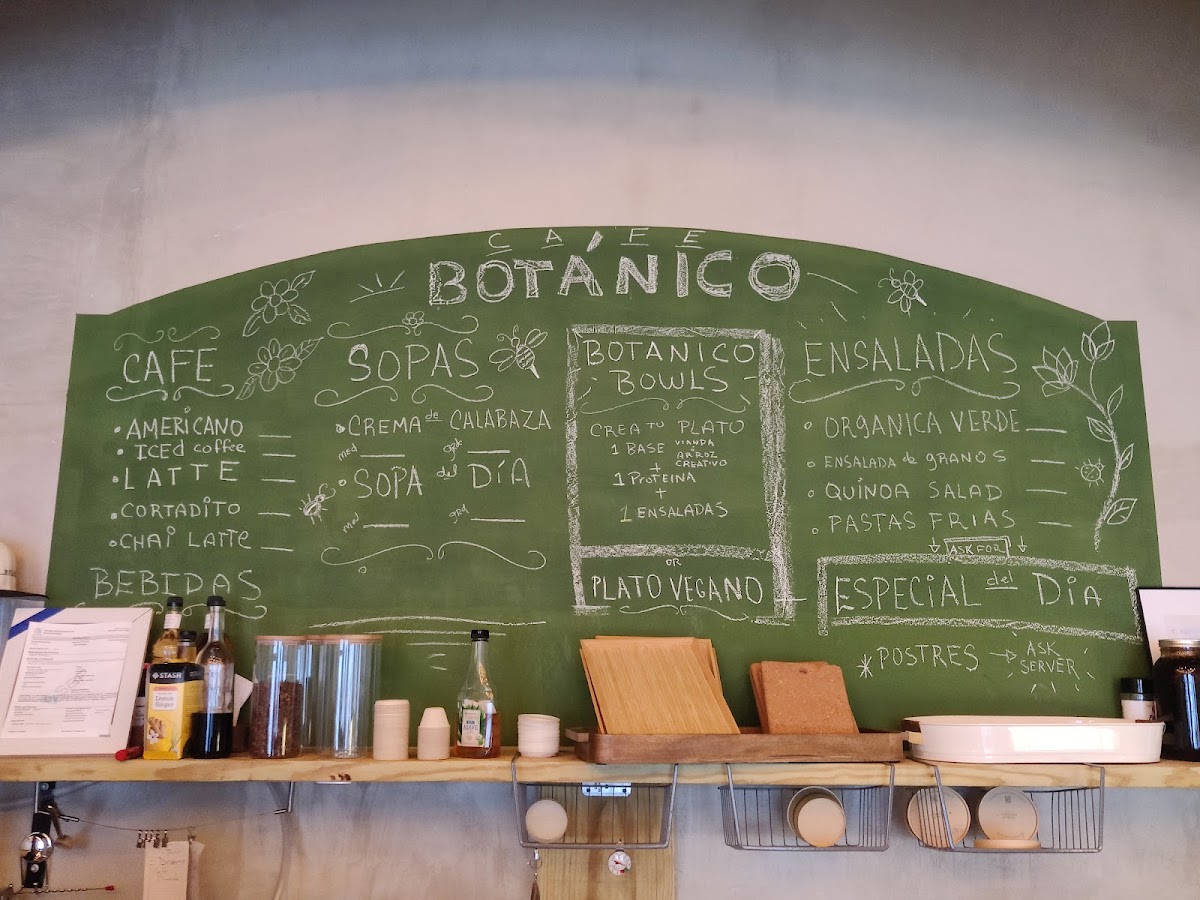 CAFE
BOTÁNICO
CAFE
AMERICANO
ICED COFFEE
LATTE
CORTADITO
CHAI LATTE
BEBIDAS
SOPAS
CREMA de CALABAZA
med grde
SOPA del DÍA
med grd
BOTANICO
BOWLS
CREA TU PLATO
1 BASE VIANDA
ARROZ
CREATIVO
+
1 PROTEINA
+
1 ENSALADAS
OR
PLATO VEGANO
ENSALADAS
ORGANICA VERDE
ENSALADA de GRANOS
QUINOA SALAD
PASTAS FRIAS
ASK FOR
ESPECIAL del DÍA
*POSTRES → ASK
SERVER
STASH
Lemon
Ginger